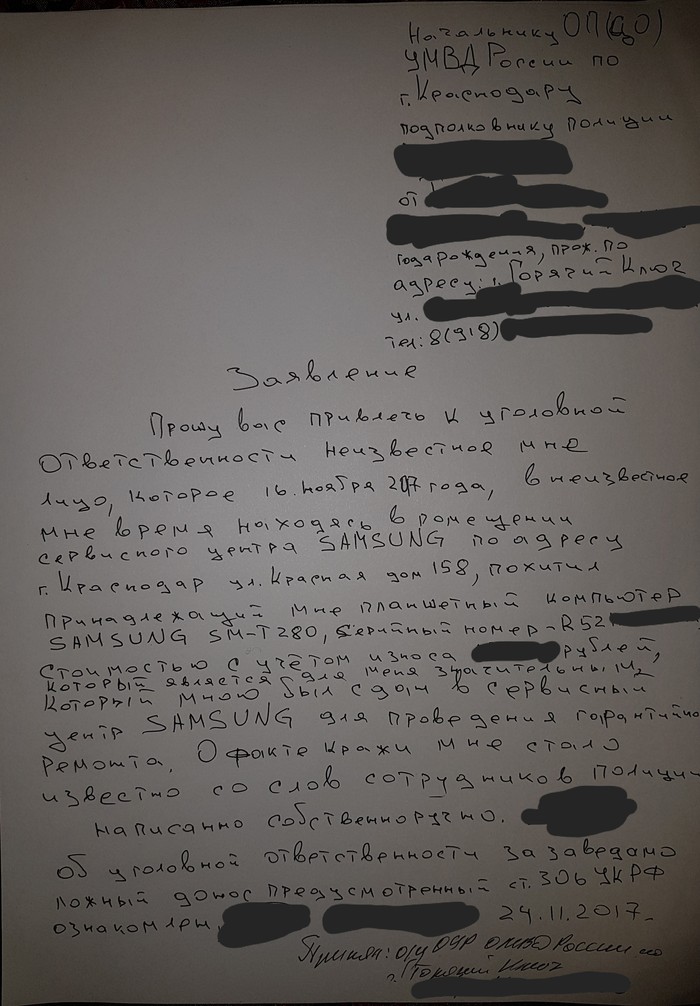 Начальнику ОП(ЦО)
УМВД России по
г. Краснодару
подполковнику полиции
от
года рождения, прож. по
адресу: г. Горячий Ключ
ул.
тел: 8(918)
Заявление
Прошу вас привлечь к уголовной
ответственности неизвестное мне
лицо, которое 16 ноября 2017 года, в неизвестное
мне время находясь в помещении
сервисного центра SAMSUNG по адресу
г. Краснодар ул. Красная дом 158, похитил
принадлежащий мне планшетный компьютер
SAMSUNG SM-T280, серийный номер-R52
стоимостью с учётом износа рублей,
который является для меня значительным,
который мною был сдан в сервисный
центр SAMSUNG для проведения гарантийно
ремонта. О факте кражи мне стало
известно со слов сотрудников полиции
написанно собственноручно.
об уголовной ответственности за заведамо
ложный донос предусмотренный ст. 306 УК РФ
ознакомлен,
24.11.2017
Принял: о/у ОУР ОМВД России по
г. Горячий Ключ